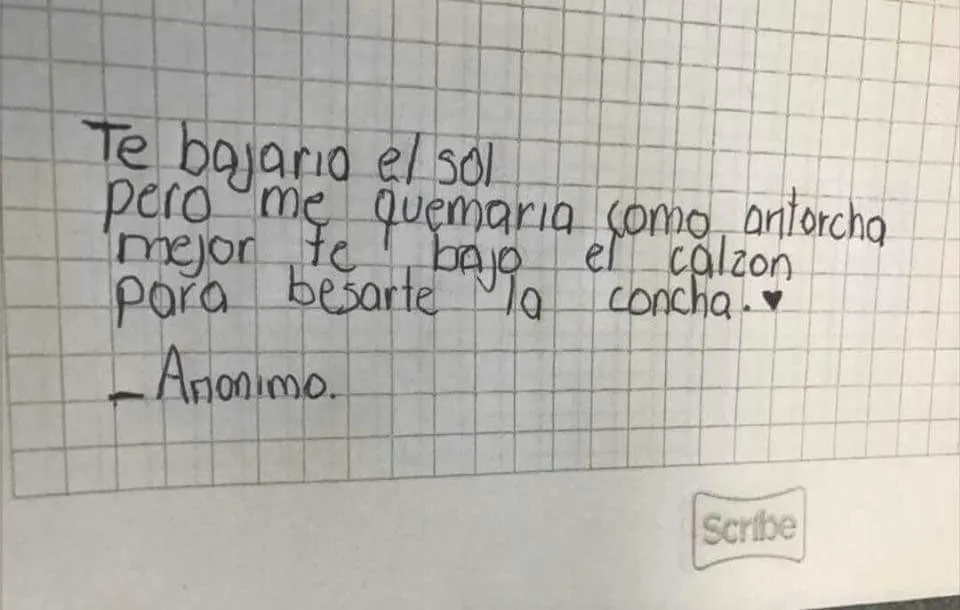 Te bajaria el sol
pero me quemaria como antorcha
mejor te bajo el calzon
para besarte la concha. ♥
- Anonimo.
Scribe